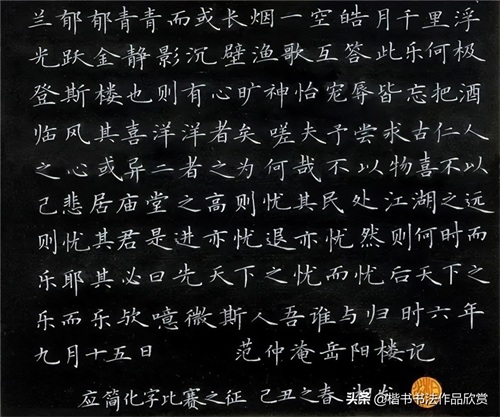 兰郁郁青青而或长烟一空皓月千里浮
光跃金静影沉壁渔歌互答此乐何极
登斯楼也则有心旷神怡宠辱皆忘把酒
临风其喜洋洋者矣嗟夫予尝求古仁人
之心或异二者之为何哉不以物喜不以
己悲居庙堂之高则忧其民处江湖之远
则忧其君是进亦忧退亦忧然则何时而
乐耶其必曰先天下之忧而忧后天下之
乐而乐欤噫微斯人吾谁与归时六年
九月十五日 范仲淹岳阳楼记
应简化字比赛之征 己丑之春
头条@楷书书法作品欣赏